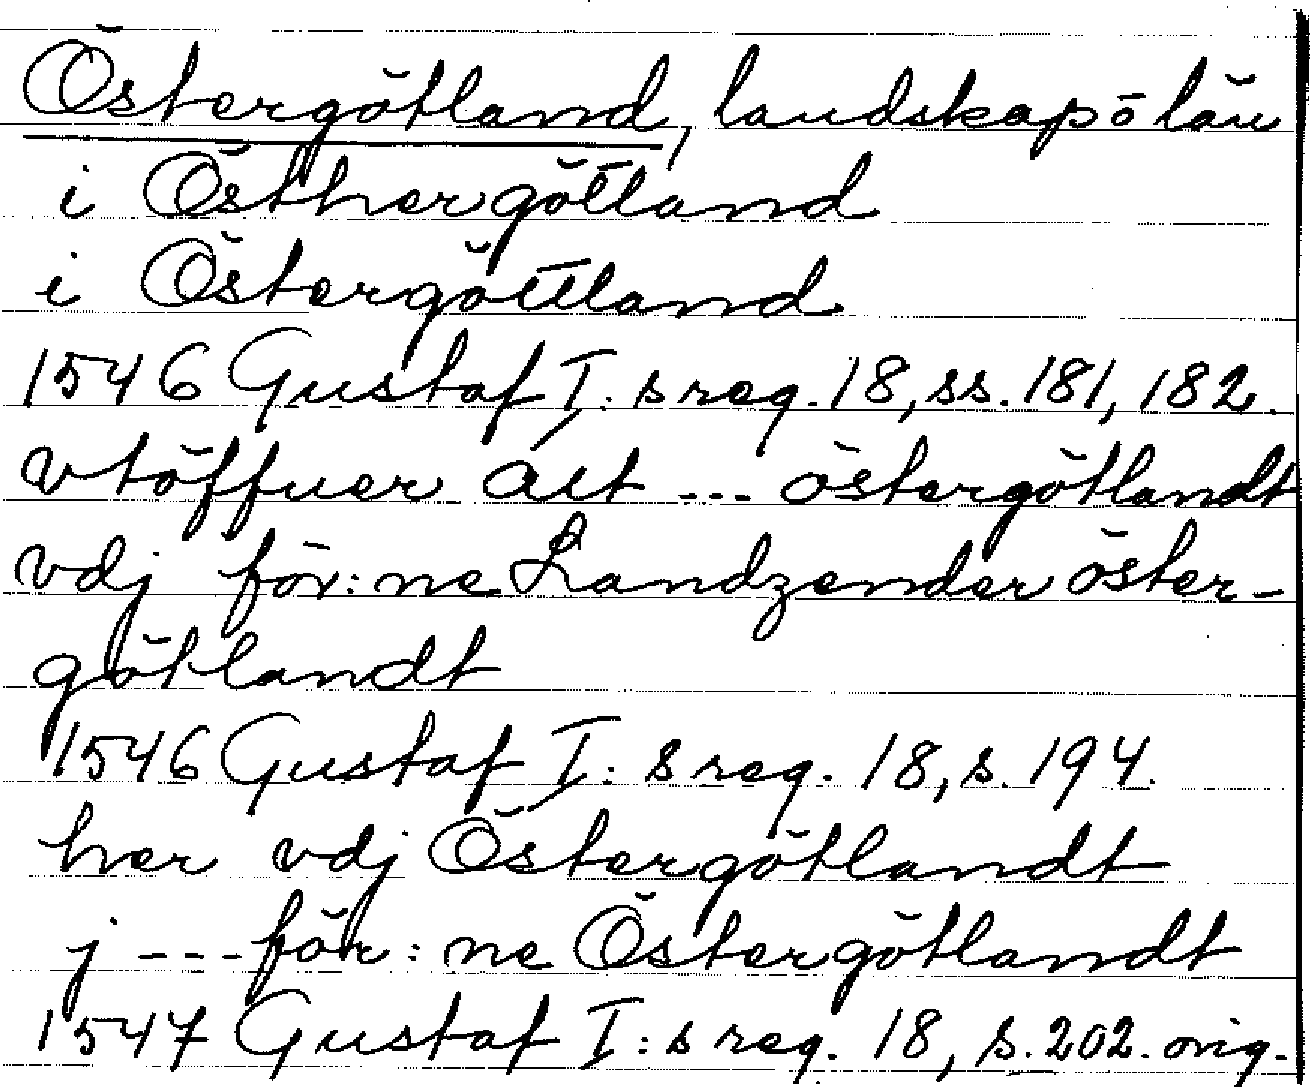 Östergötland, landskap o län
i Östhergötland
i Östergöttland
1546 Gustaf I:s reg. 18, ss. 181, 182.
vtöffuer alt --- östergötlandt
vdj för:ne Landzender öster-
götlandt
1546 Gustaf I:s reg. 18, s. 194.
her vdj Östergötlandt
j --- för:ne Östergötlandt
1547 Gustaf I:s reg. 18, s. 202. orig.